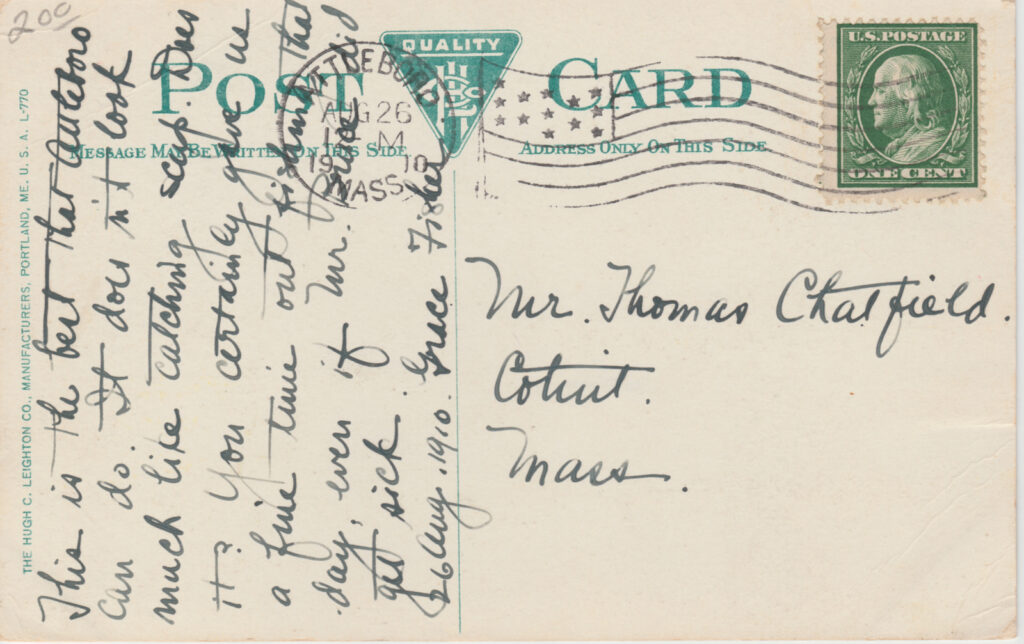 200
POST CARD
QUALITY
HLCO
MESSAGE MAY BE WRITTEN ON THIS SIDE
ADDRESS ONLY ON THIS SIDE.
U.S. POSTAGE
ONE CENT
ATTLEBORO
AUG 26
M
1910
MASS.
This is the best that Attleboro
can do. It does n't look
much like catching scup. Does
it? You certainly gave us
a fine time out fishing that
day, even if Mr. did
get sick.
26 Aug. 1910. Grace Fisher
Mr. Thomas Chatfield.
Cotuit.
Mass.
THE HUGH C. LEIGHTON CO., MANUFACTURERS, PORTLAND, ME. U. S. A. L-770